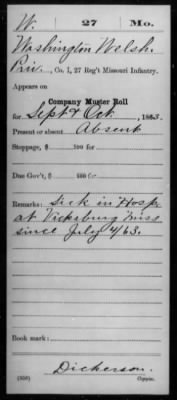 W. 27 Mo.
Washington Welsh
Priv., Co. I, 27 Reg't Missouri Infantry.
Appears on
Company Muster Roll
for Sept & Oct, 1863.
Present or absent Absent
Stoppage, $ 100 for
Due Gov't, $ 100
Remarks: Sick in Hosp.
at Vicksburg Miss
since July 4/63.
Book mark:
Dickerson.
(358) Copyist.